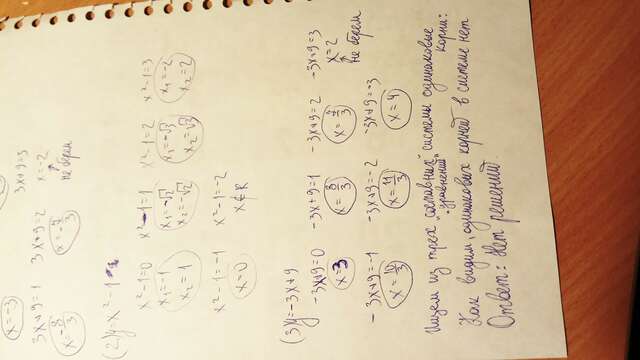 x=-3
3x+9=1 3x+9=2 3x+9=3
x=-8/3 x=-7/3 x=-2
не берем
(2) y=x²-1
x²-1=0 x²-1=1 x²-1=2 x²-1=3
x₁=-1 x₁=-√2 x₁=-√3 x₁=-2
x₂=1 x₂=√2 x₂=√3 x₂=2
x²-1=-1 x²-1=-2
x=0 x∉R
(3) y=-3x+9
-3x+9=0 -3x+9=1 -3x+9=2 -3x+9=3
x=3 x=8/3 x=7/3 x=2
не берем
-3x+9=-1 -3x+9=-2 -3x+9=-3
x=10/3 x=11/3 x=4
Ищем из трех "составных" системы одинаковые
уравнений корни:
Как видим, одинаковых корней в системе нет
Ответ: Нет решений